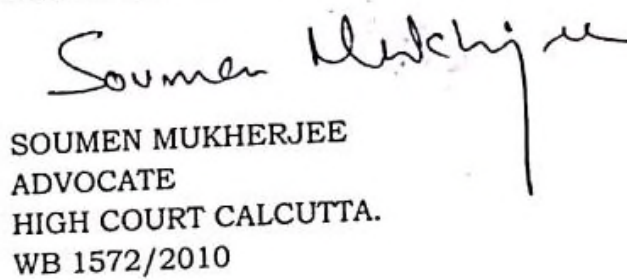 Soumen Mukherjee
SOUMEN MUKHERJEE
ADVOCATE
HIGH COURT CALCUTTA.
WB 1572/2010